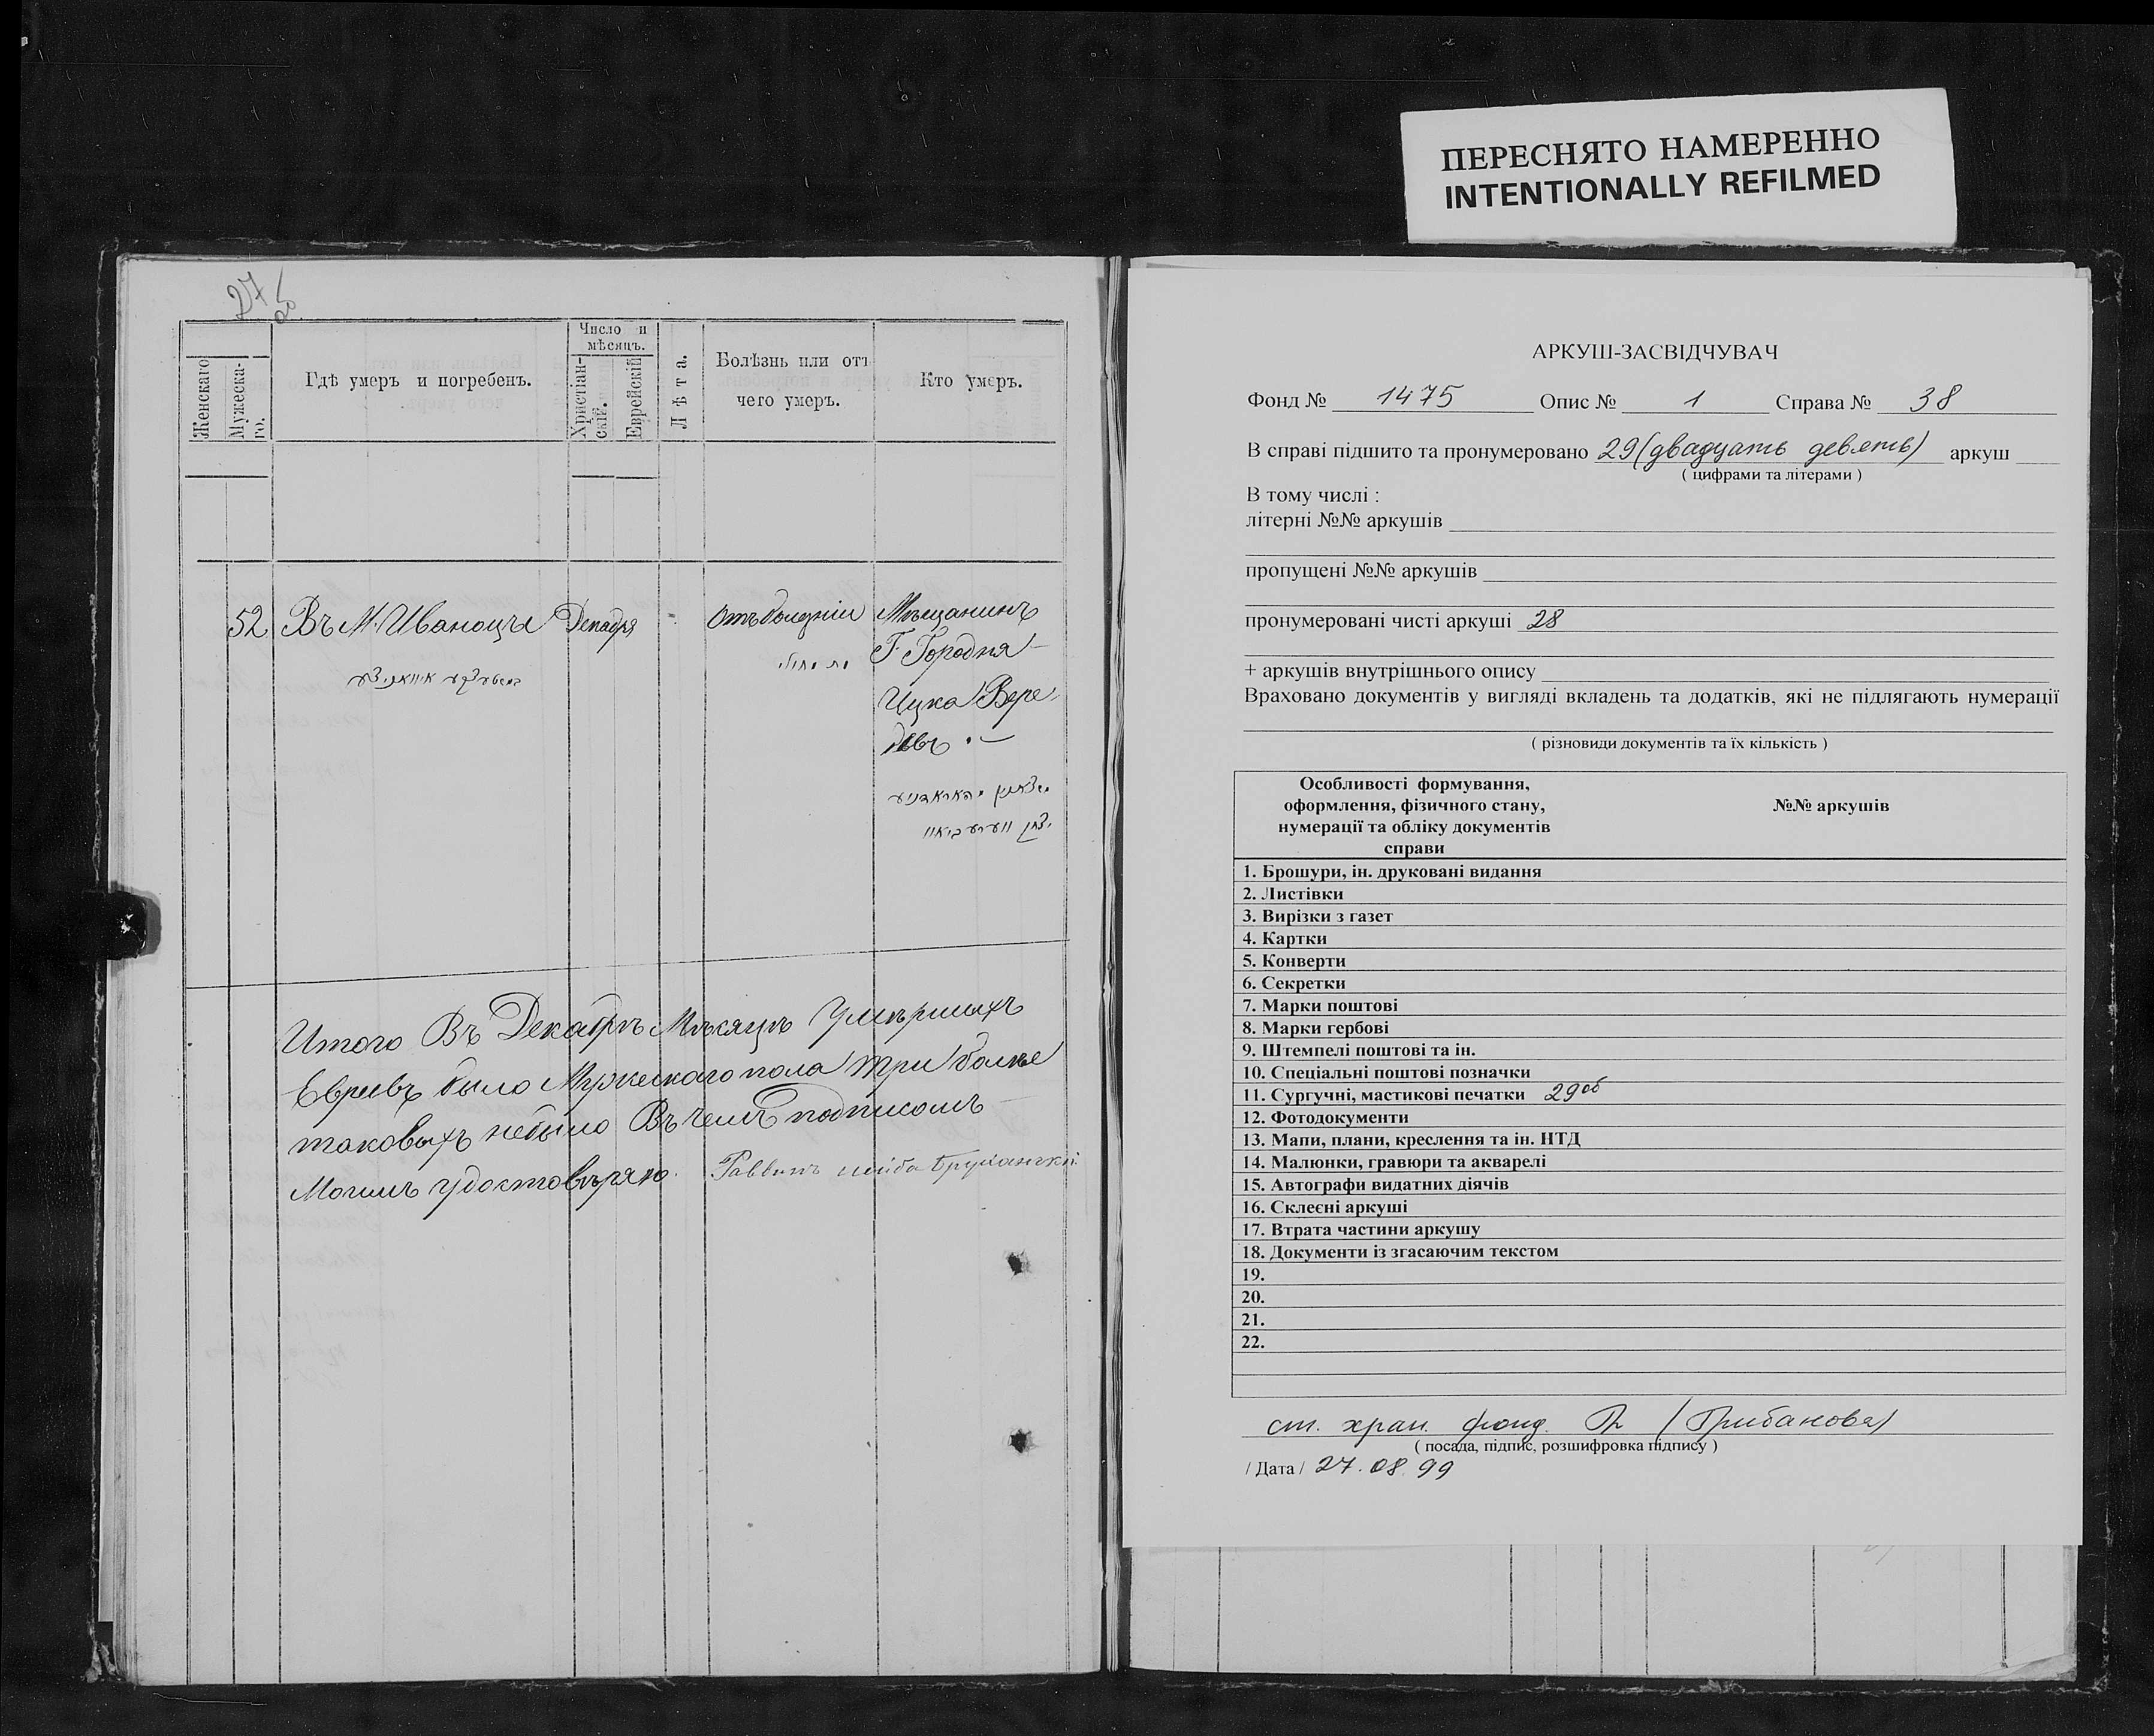 ПЕРЕСНЯТО НАМЕРЕННО
INTENTIONALLY REFILMED
27 об
Женскаго
Мужеска-
го.
Гдѣ умеръ и погребенъ.
Число и
мѣсяцъ.
Христіан-
скій.
Еврейскій
Лѣта.
Болѣзнь или отъ
чего умеръ.
Кто умеръ.
52
Въ М. Иваницы
Декабря
Отъ болезни
Мѣщанинъ
Г. Городня
Ицка Вере
Итого Въ Декабрѣ Мѣсяцѣ Умѣршихъ
Евреевъ было Мужескаго пола три болѣе
таковыхъ небыло Въ чемъ подписомъ
Моимъ удостовѣряю.
Раввинъ
АРКУШ-ЗАСВІДЧУВАЧ
Фонд № 1475 Опис № 1 Справа № 38
В справі підшито та пронумеровано 29 (двадцать девять) аркуш
( цифрами та літерами )
В тому числі :
літерні №№ аркушів
пропущені №№ аркушів
пронумеровані чисті аркуші 28
+ аркушів внутрішнього опису
Враховано документів у вигляді вкладень та додатків, які не підлягають нумерації
( різновиди документів та їх кількість )
Особливості формування,
оформлення, фізичного стану,
нумерації та обліку документів
справи
№№ аркушів
1. Брошури, ін. друковані видання
2. Листівки
3. Вирізки з газет
4. Картки
5. Конверти
6. Секретки
7. Марки поштові
8. Марки гербові
9. Штемпелі поштові та ін.
10. Спеціальні поштові позначки
11. Сургучні, мастикові печатки 29об
12. Фотодокументи
13. Мапи, плани, креслення та ін. НТД
14. Малюнки, гравюри та акварелі
15. Автографи видатних діячів
16. Склеєні аркуші
17. Втрата частини аркушу
18. Документи із згасаючим текстом
19.
20.
21.
22.
ст. хран. фонд. (Грибанова)
( посада, підпис, розшифровка підпису )
/ Дата / 27.08.99